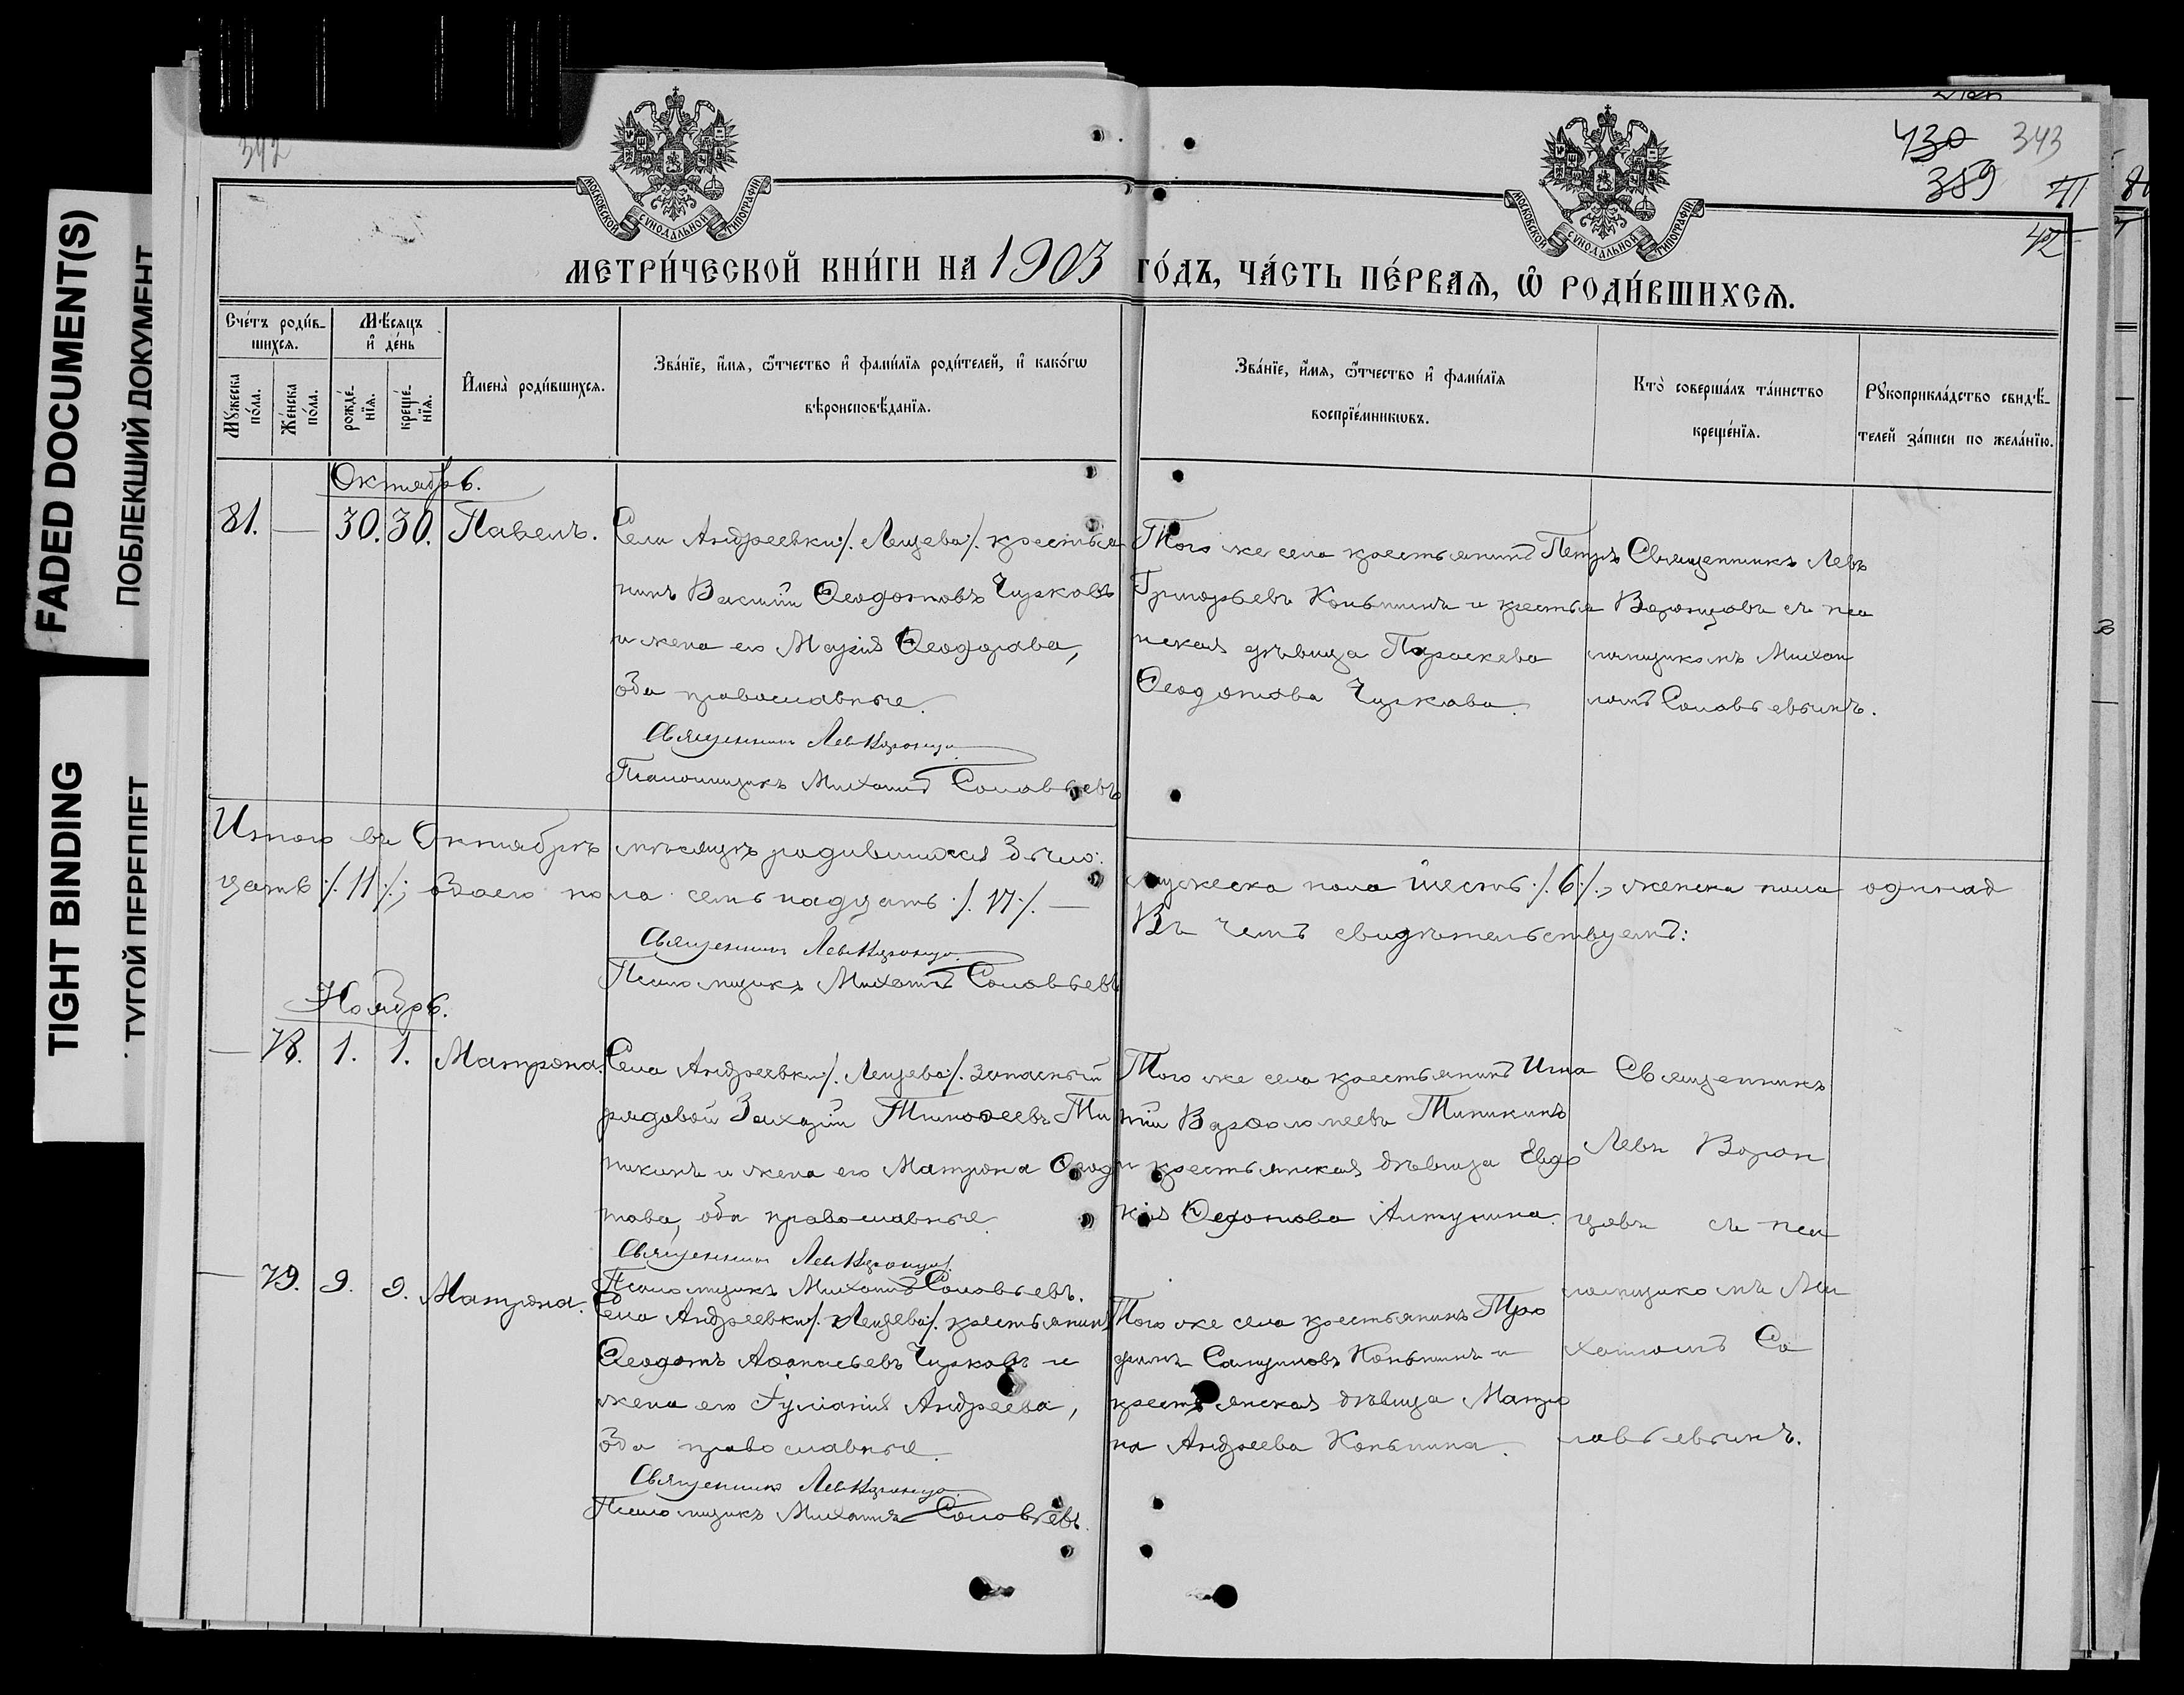 FADED DOCUMENT(S)
ПОБЛЕКШИЙ ДОКУМЕНТ
TIGHT BINDING
ТУГОЙ ПЕРЕПЛЕТ
342
430 343
389
41
42
МОСКОВСКОЙ СѴНОДАЛЬНОЙ ТИПОГРАФІИ
МОСКОВСКОЙ СѴНОДАЛЬНОЙ ТИПОГРАФІИ
МЕТРИ́ЧЕСКОЙ КНИ́ГИ НА 1903 ГО́ДЪ, ЧА́СТЬ ПЕ́РВАЯ, Ѡ҆ РОДИ́ВШИХСЯ.
Сче́тъ роди́в-
шихся.
Мѣ́сяцъ
и҆ де́нь
Мꙋ́жеска
по́ла.
Же́нска
по́ла.
рожде́-
нїя.
креще́-
нїя.
И҆мена̀ роди́вшихся.
Зва́нїе, и҆́мя, ѻ҆́тчество и҆ фами́лїя роди́телей, и҆ како́гѡ
вѣроисповѣ́данїя.
Зва́нїе, и҆́мя, ѻ҆́тчество и҆ фами́лїя
воспрїе́мникѡвъ.
Кто̀ соверша́лъ та́инство
креще́нїя.
Рꙋкоприкла́дство свидѣ́-
телей за́писи по жела́нїю.
Октябрь.
81. — 30. 30. Павелъ.
Села Андреевки /. Лещева /. крестья
нинъ Василій Ѳеодотовъ Чурковъ
и жена его Марія Ѳеодорова,
оба православные.
Священникъ Левъ Воронцовъ
Псаломщикъ Михаилъ Соловьевъ
Того же села крестьянинъ Петръ
Григорьевъ Коньшинъ и крестья
нская дѣвица Параскева
Ѳеодотова Чуркова.
Священникъ Левъ
Воронцовъ съ пса
ломщикомъ Михаи
ломъ Соловьевымъ.
Итого въ Октябрѣ мѣсяцѣ родившихся было: мужеска пола шесть /. 6 /., женска пола одинад
цать /. 11 /.; обоего пола семьнадцать /. 17 /. — Въ чемъ свидѣтельствуемъ:
Священникъ Левъ Воронцовъ
Псаломщикъ Михаилъ Соловьевъ
Ноябрь.
— 78. 1. 1. Матрона.
Села Андреевки /. Лещева /. запасный
рядовой Захарій Тимоѳеевъ Ми
никинъ и жена его Матрона Ѳеодо
това, оба православные.
Священникъ Левъ Воронцовъ
Псаломщикъ Михаилъ Соловьевъ.
Того же села крестьянинъ Игна
тій Варѳоломеевъ Миникинъ
и крестьянская дѣвица Евдо
кія Ѳедотова Алтунина.
— 79. 9. 9. Матрона.
Села Андреевки /. Лещева /. крестьянинъ
Ѳеодотъ Аѳанасьевъ Чурковъ и
жена его Іуліанія Андреева,
оба православные.
Священникъ Левъ Воронцовъ
Псаломщикъ Михаилъ Соловьевъ.
Того же села крестьянинъ Тро
фимъ Коньшинъ и
крестьянская дѣвица Матро
на Андреева Коньшина.
Священникъ
Левъ Ворон
цовъ съ пса
ломщикомъ Ми
хаиломъ Со
ловьевымъ.